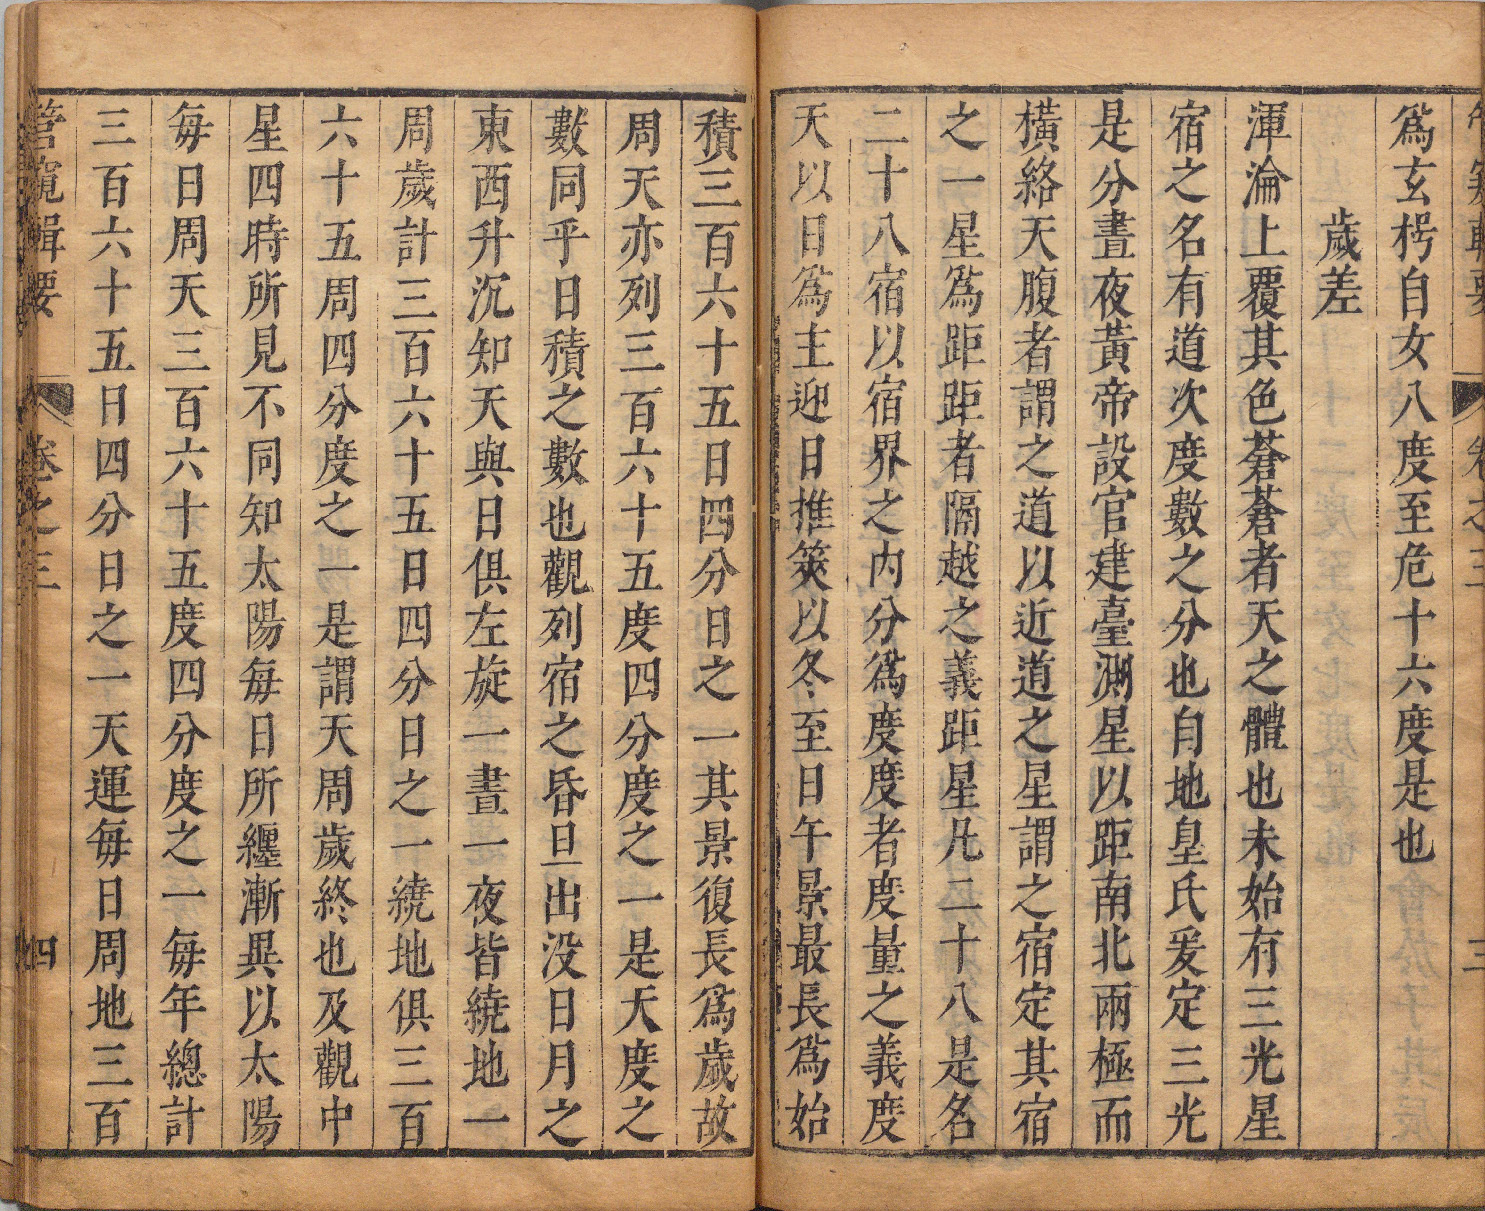 卷之三
三
爲玄枵自女八度至危十六度是也
歲差
渾淪上覆其色蒼蒼者天之體也未始有三光星
宿之名有道次度數之分也自地皇氏爰定三光
是分晝夜黃帝設官建臺測星以距南北兩極而
橫絡天腹者謂之道以近道之星謂之宿定其宿
之一星爲距距者隔越之義距星凡二十八是名
二十八宿以宿界之內分爲度度者度量之義度
天以日爲主迎日推筴以冬至日午景最長爲始
積三百六十五日四分日之一其景復長爲歲故
周天亦列三百六十五度四分度之一是天度之
數同乎日積之數也觀列宿之昏旦出没日月之
東西升沉知天與日俱左旋一晝一夜皆繞地一
周歲計三百六十五日四分日之一繞地俱三百
六十五周四分度之一是謂天周歲終也及觀中
星四時所見不同知太陽每日所纏漸異以太陽
每日周天三百六十五度四分度之一每年總計
三百六十五日四分日之一天運每日周地三百
管窺輯要
卷之三
四